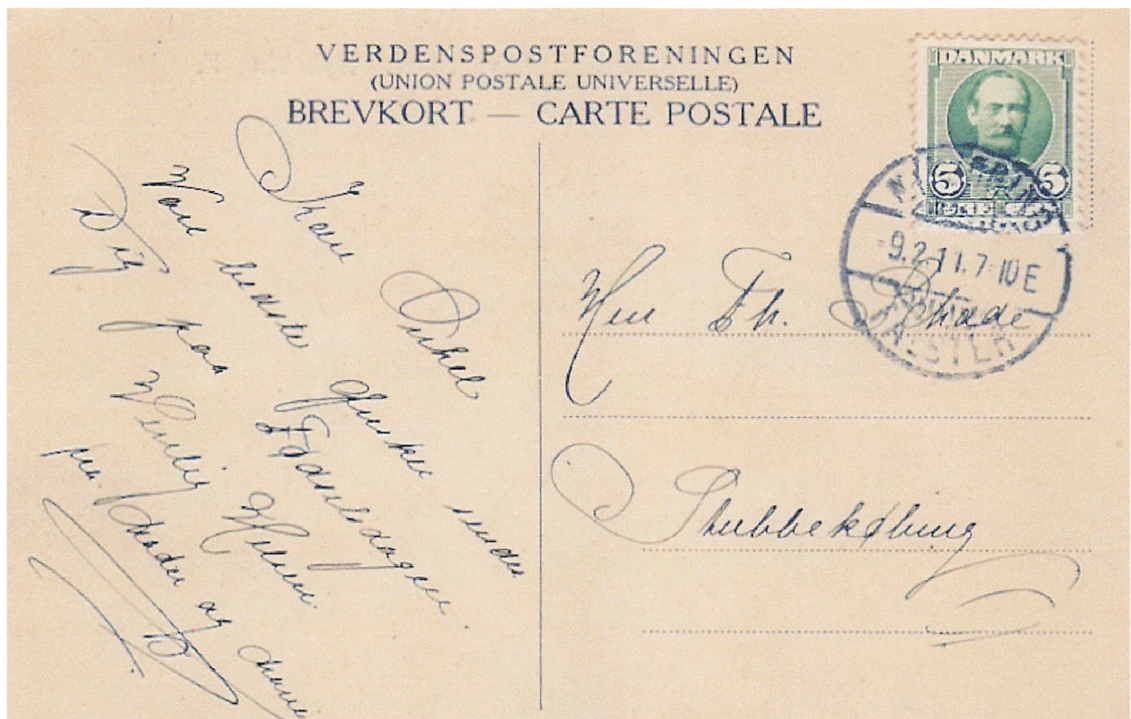 VERDENSPOSTFORENINGEN
(UNION POSTALE UNIVERSELLE)
BREVKORT — CARTE POSTALE
DANMARK
5 5
-9.2.11.7-10E
FALSTER
Kære Onkel
Vore bedste Ønsker sendes
Dig paa Fødselsdagen.
Venlig Hilsen.
fra
og
Herr Th. Schade
Stubbekøbing